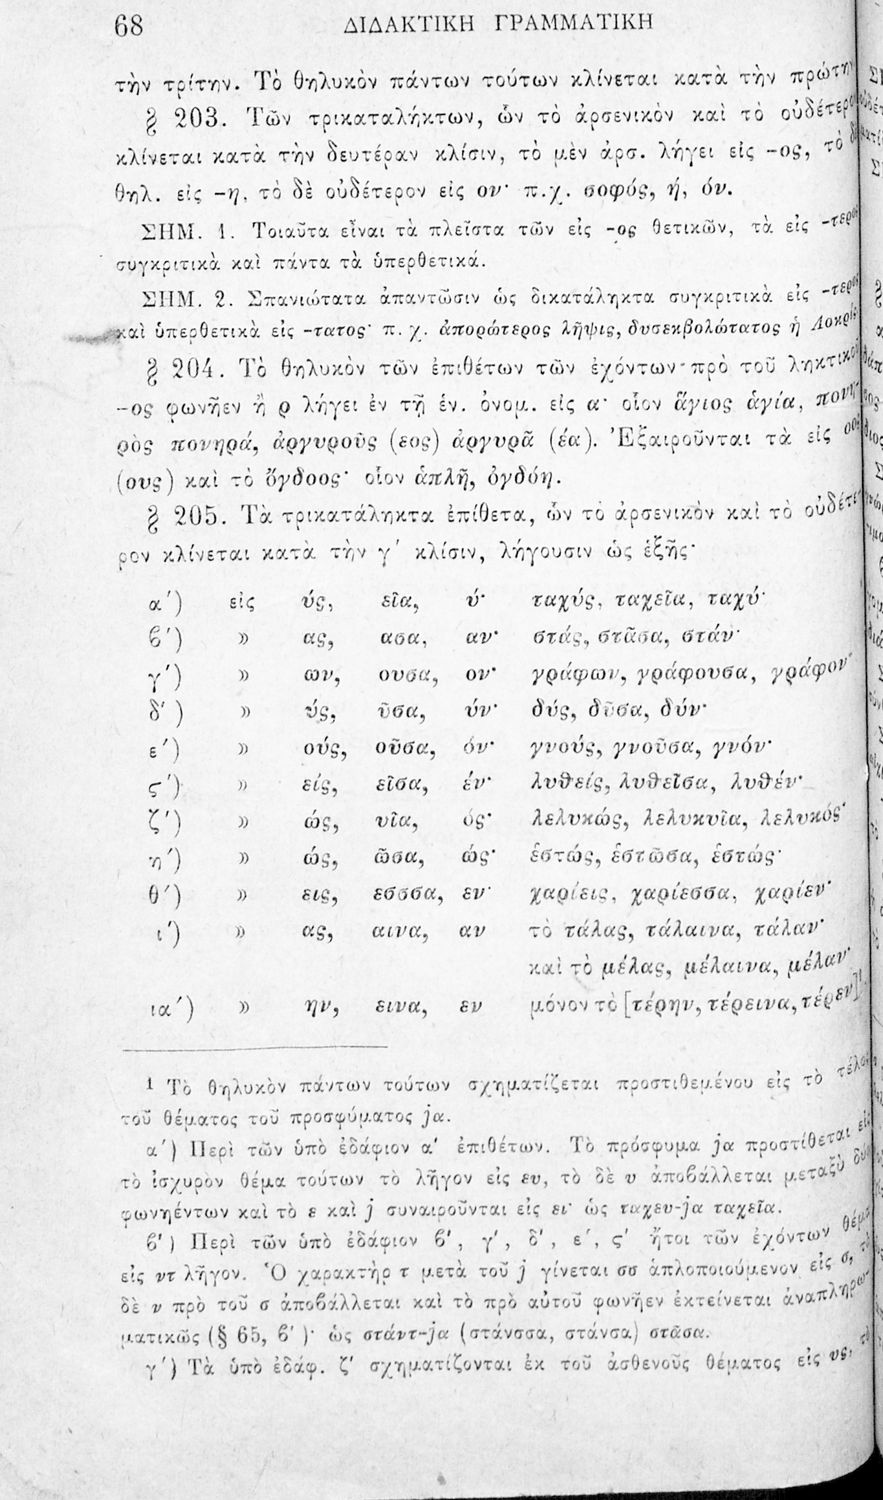 68 ΔΙΔΑΚΤΙΚΗ ΓΡΑΜΜΑΤΙΚΗ
τὴν τρίτην. Τὸ θηλυκὸν πάντων τούτων κλίνεται κατὰ τὴν πρώτην
§ 203. Τῶν τρικαταλήκτων, ὧν τὸ ἀρσενικὸν καὶ τὸ οὐδέτερο
κλίνεται κατὰ τὴν δευτέραν κλίσιν, τὸ μὲν ἀρσ. λήγει εἰς -ος, τὸ δὲ
θηλ. εἰς -η, τὸ δὲ οὐδέτερον εἰς ον· π.χ. σοφός, ή, όν.
ΣΗΜ. 1. Τοιαῦτα εἶναι τὰ πλεῖστα τῶν εἰς -ος θετικῶν, τὰ εἰς -τερος
συγκριτικὰ καὶ πάντα τὰ ὑπερθετικά.
ΣΗΜ. 2. Σπανιώτατα ἀπαντῶσιν ὡς δικατάληκτα συγκριτικὰ εἰς -τερος
καὶ ὑπερθετικὰ εἰς -τατος· π. χ. ἀπορώτερος λῆψις, δυσεκβολώτατος ἡ Λοκρίς
§ 204. Τὸ θηλυκὸν τῶν ἐπιθέτων τῶν ἐχόντων πρὸ τοῦ ληκτικοῦ
-ος φωνῆεν ἢ ρ λήγει ἐν τῇ ἑν. ὀνομ. εἰς α· οἷον ἅγιος ἁγία, πονη-
ρὸς πονηρά, ἀργυροῦς (εος) ἀργυρᾶ (έα). Ἐξαιροῦνται τὰ εἰς οος
(ους) καὶ τὸ ὄγδοος· οἷον ἁπλῆ, ὀγδόη.
§ 205. Τὰ τρικατάληκτα ἐπίθετα, ὧν τὸ ἀρσενικὸν καὶ τὸ οὐδέτε-
ρον κλίνεται κατὰ τὴν γ΄ κλίσιν, λήγουσιν ὡς ἑξῆς·
α΄) εἰς ύς, εῖα, ύ· ταχύς, ταχεῖα, ταχύ·
β΄) » ας, ασα, αν· στάς, στᾶσα, στάν·
γ΄) » ων, ουσα, ον· γράφων, γράφουσα, γράφον·
δ΄) » ύς, ῦσα, ύν· δύς, δῦσα, δύν·
ε΄) » ούς, οῦσα, όν· γνούς, γνοῦσα, γνόν·
ϛ΄) » είς, εῖσα, έν· λυθείς, λυθεῖσα, λυθέν·
ζ΄) » ώς, υῖα, ός· λελυκώς, λελυκυῖα, λελυκός·
η΄) » ώς, ῶσα, ώς· ἑστώς, ἑστῶσα, ἑστώς·
θ΄) » εις, εσσα, εν· χαρίεις, χαρίεσσα, χαρίεν·
ι΄) » ας, αινα, αν τὸ τάλας, τάλαινα, τάλαν·
καὶ τὸ μέλας, μέλαινα, μέλαν·
ια΄) » ην, εινα, εν μόνον τὸ [τέρην, τέρεινα, τέρεν]¹.
1 Τὸ θηλυκὸν πάντων τούτων σχηματίζεται προστιθεμένου εἰς τὸ τέλος
τοῦ θέματος τοῦ προσφύματος ja.
α΄) Περὶ τῶν ὑπὸ ἐδάφιον α΄ ἐπιθέτων. Τὸ πρόσφυμα ja προστίθεται εἰς
τὸ ἰσχυρὸν θέμα τούτων τὸ λῆγον εἰς ευ, τὸ δὲ υ ἀποβάλλεται μεταξὺ δύο
φωνηέντων καὶ τὸ ε καὶ j συναιροῦνται εἰς ει· ὡς ταχευ-ja ταχεῖα.
β΄) Περὶ τῶν ὑπὸ ἐδάφιον β΄, γ΄, δ΄, ε΄, ϛ΄ ἤτοι τῶν ἐχόντων θέμα
εἰς ντ λῆγον. Ὁ χαρακτὴρ τ μετὰ τοῦ j γίνεται σσ ἁπλοποιούμενον εἰς σ, τὸ
δὲ ν πρὸ τοῦ σ ἀποβάλλεται καὶ τὸ πρὸ αὐτοῦ φωνῆεν ἐκτείνεται ἀναπληρω-
ματικῶς (§ 65, β΄)· ὡς στάντ-ja (στάνσσα, στάνσα) στᾶσα.
γ΄) Τὰ ὑπὸ ἐδάφ. ζ΄ σχηματίζονται ἐκ τοῦ ἀσθενοῦς θέματος εἰς υς,